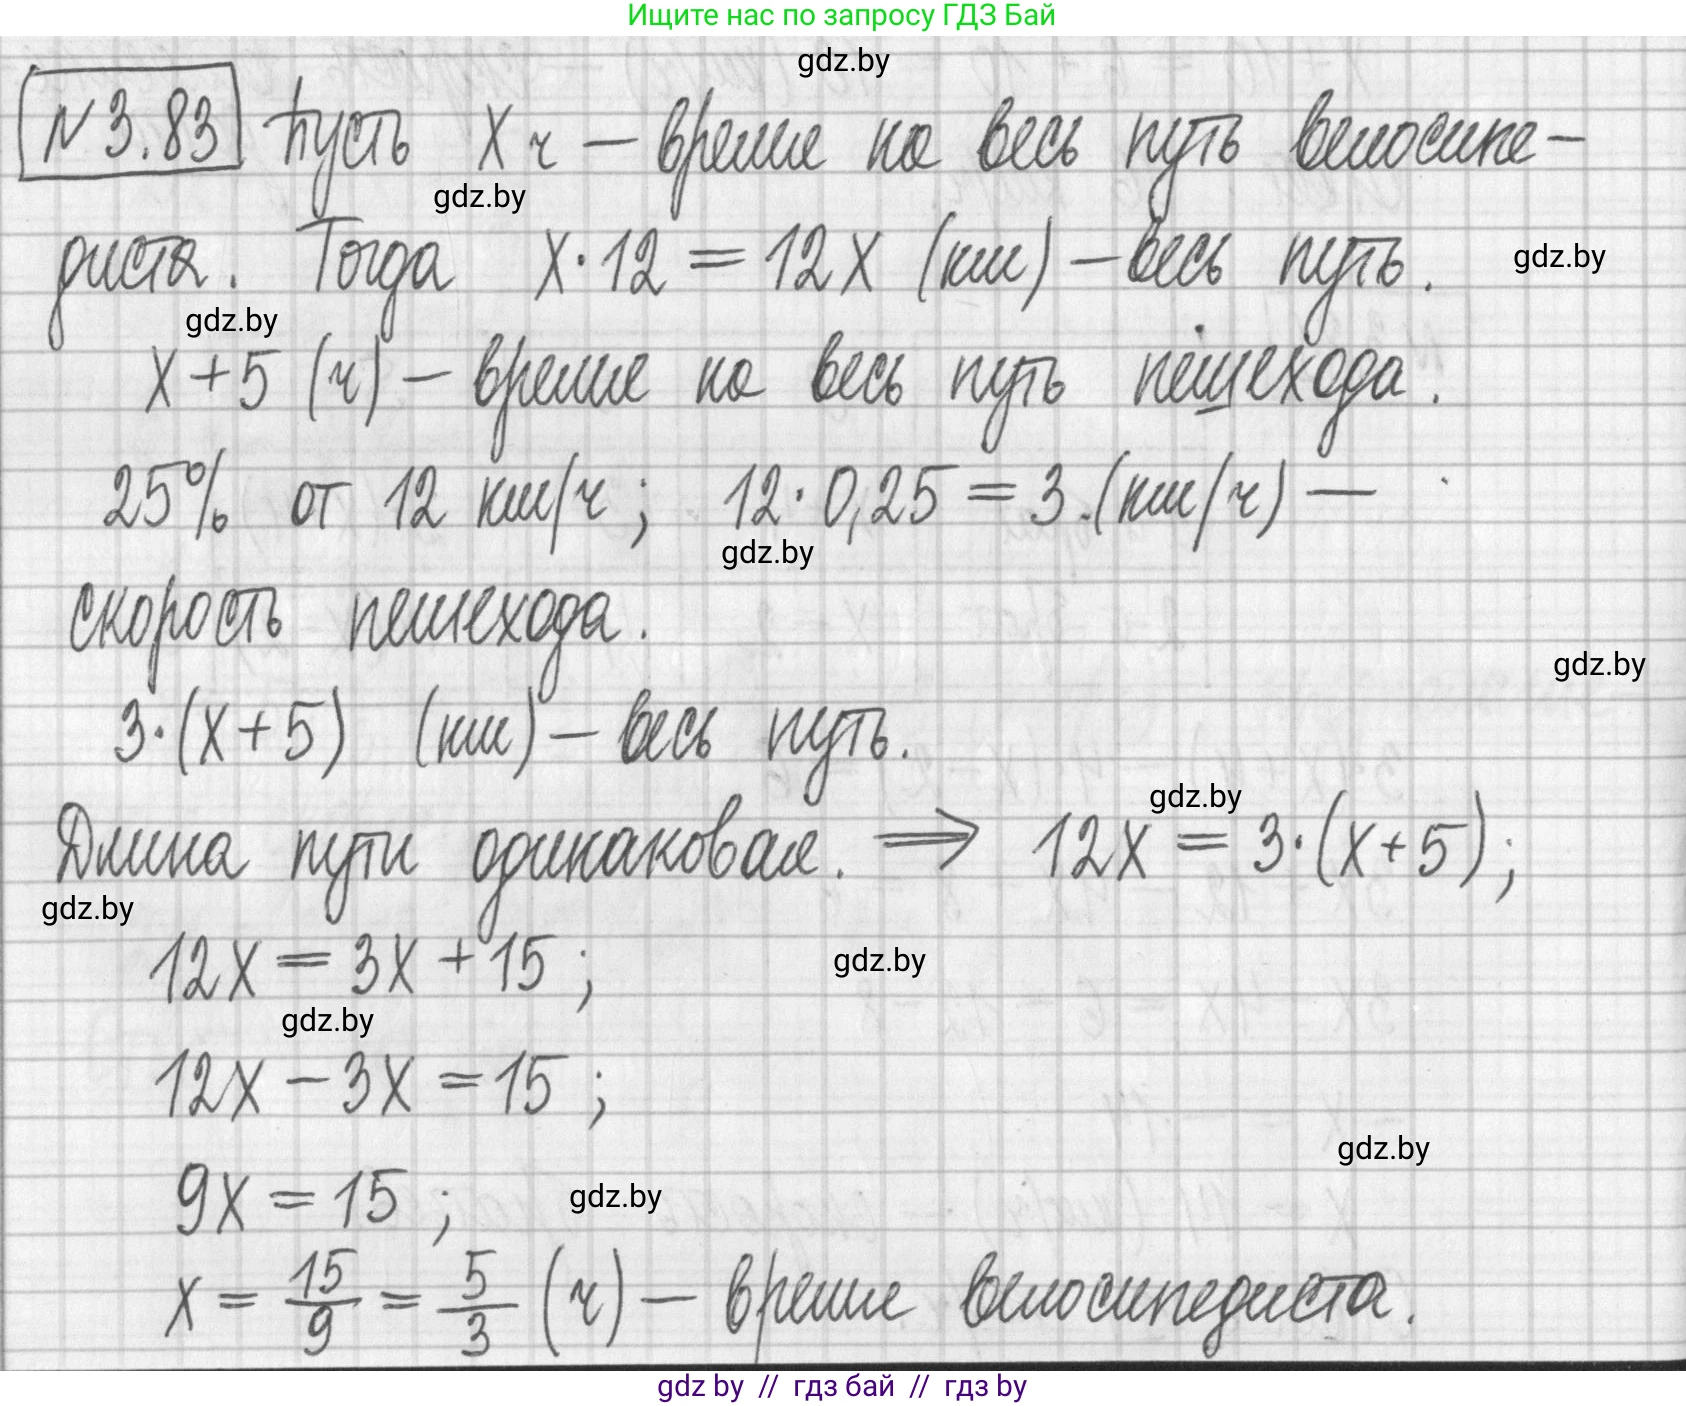 Ищите нас по запросу ГДЗ Бай
gdz.by
N 3.83 Пусть x ч – время на весь путь велосипе-
gdz.by
диста. Тогда x·12 = 12x (км) – весь путь.
gdz.by
gdz.by
x+5 (ч) – время на весь путь пешехода.
25% от 12 км/ч; 12·0,25 = 3 (км/ч) –
gdz.by
скорость пешехода.
gdz.by
3·(x+5) (км) – весь путь.
gdz.by
Длина пути одинаковая. ⟹ 12x = 3·(x+5);
gdz.by
12x = 3x + 15;
gdz.by
gdz.by
12x – 3x = 15;
gdz.by
9x = 15;
gdz.by
x = 15/9 = 5/3 (ч) – время велосипедиста.
gdz by // гдз бай // гдз by